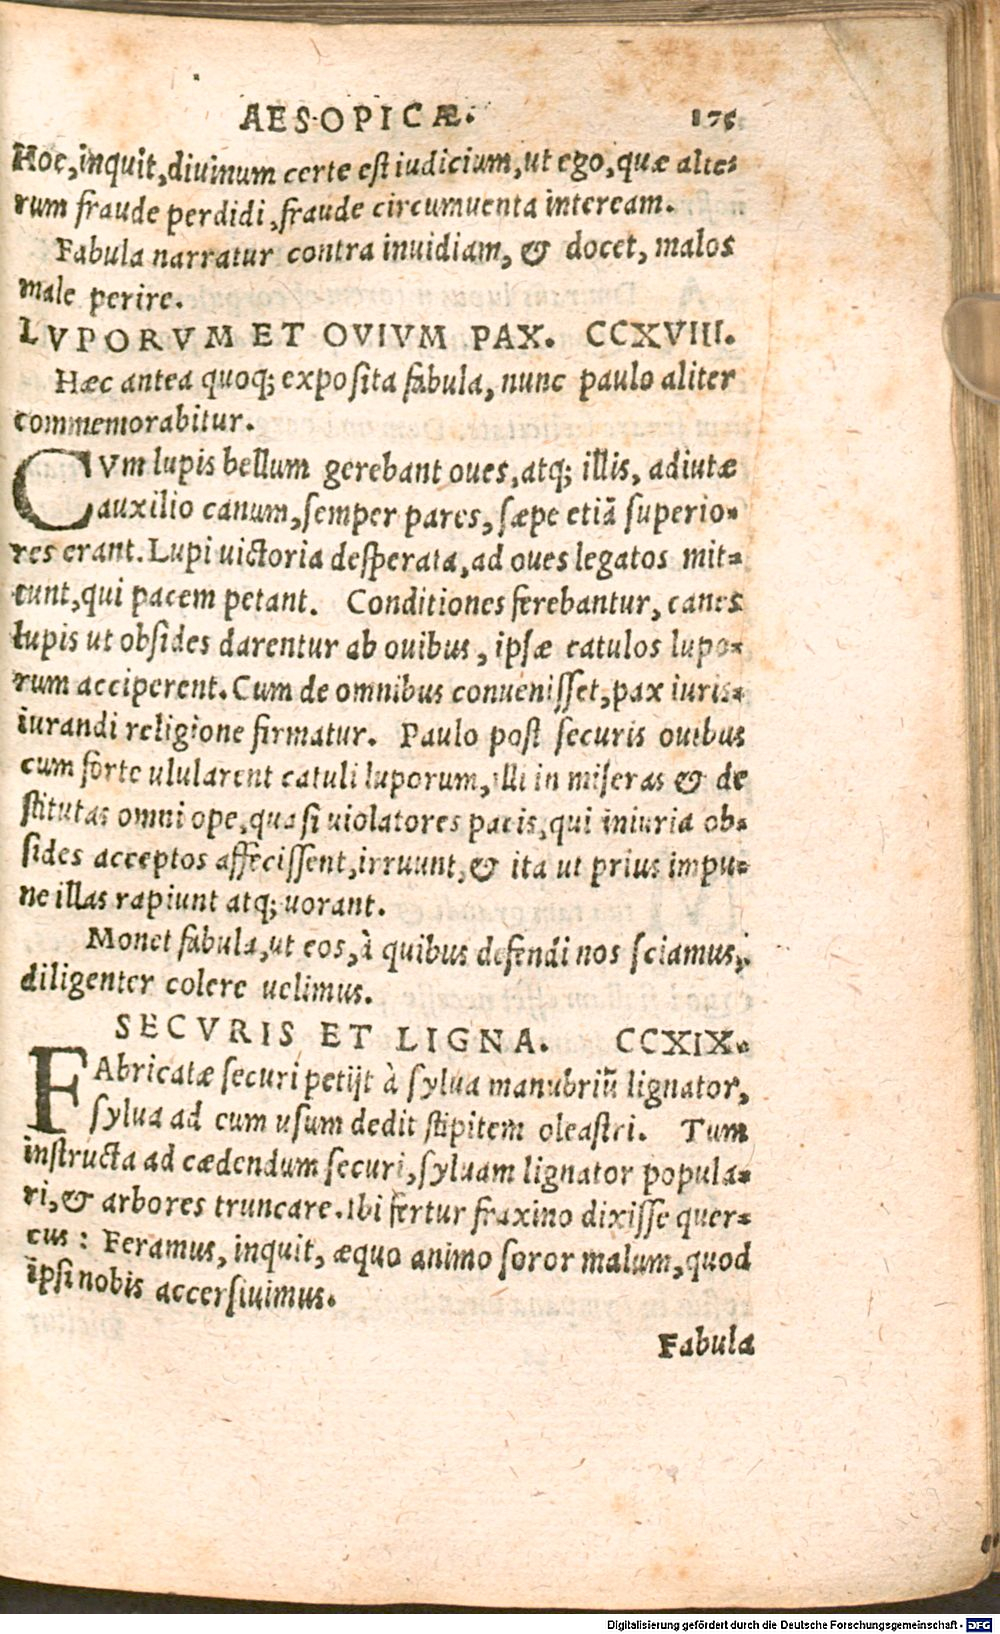 AESOPICÆ. 175
Hoc, inquit, diuinum certe est iudicium, ut ego, quæ alte-
rum fraude perdidi, fraude circumuenta inteream.
Fabula narratur contra inuidiam, & docet, malos
male perire.
LVPORVM ET OVIVM PAX. CCXVIII.
Hæc antea quoq; exposita fabula, nunc paulo aliter
commemorabitur.
CVm lupis bellum gerebant oues, atq; illis, adiutæ
auxilio canum, semper pares, sæpe etiã superio-
res erant. Lupi uictoria desperata, ad oues legatos mit-
tunt, qui pacem petant. Conditiones ferebantur, canes
lupis ut obsides darentur ab ouibus, ipsæ catulos lupo-
rum acciperent. Cum de omnibus conuenisset, pax iuris-
iurandi religione firmatur. Paulo post securis ouibus
cum forte ulularent catuli luporum, illi in miseras & de
stitutas omni ope, quasi uiolatores pacis, qui iniuria ob-
sides acceptos affecissent, irruunt, & ita ut prius impu-
ne illas rapiunt atq; uorant.
Monet fabula, ut eos, à quibus defendi nos sciamus,
diligenter colere uelimus.
SECVRIS ET LIGNA. CCXIX.
FAbricatæ securi petijt à sylua manubriũ lignator,
sylua ad eum usum dedit stipitem oleastri. Tum
instructa ad cædendum securi, syluam lignator popula-
ri, & arbores truncare. Ibi fertur fraxino dixisse quer-
cus: Feramus, inquit, æquo animo soror malum, quod
ipsi nobis accersiuimus.
Fabula
Digitalisierung gefördert durch die Deutsche Forschungsgemeinschaft - DFG